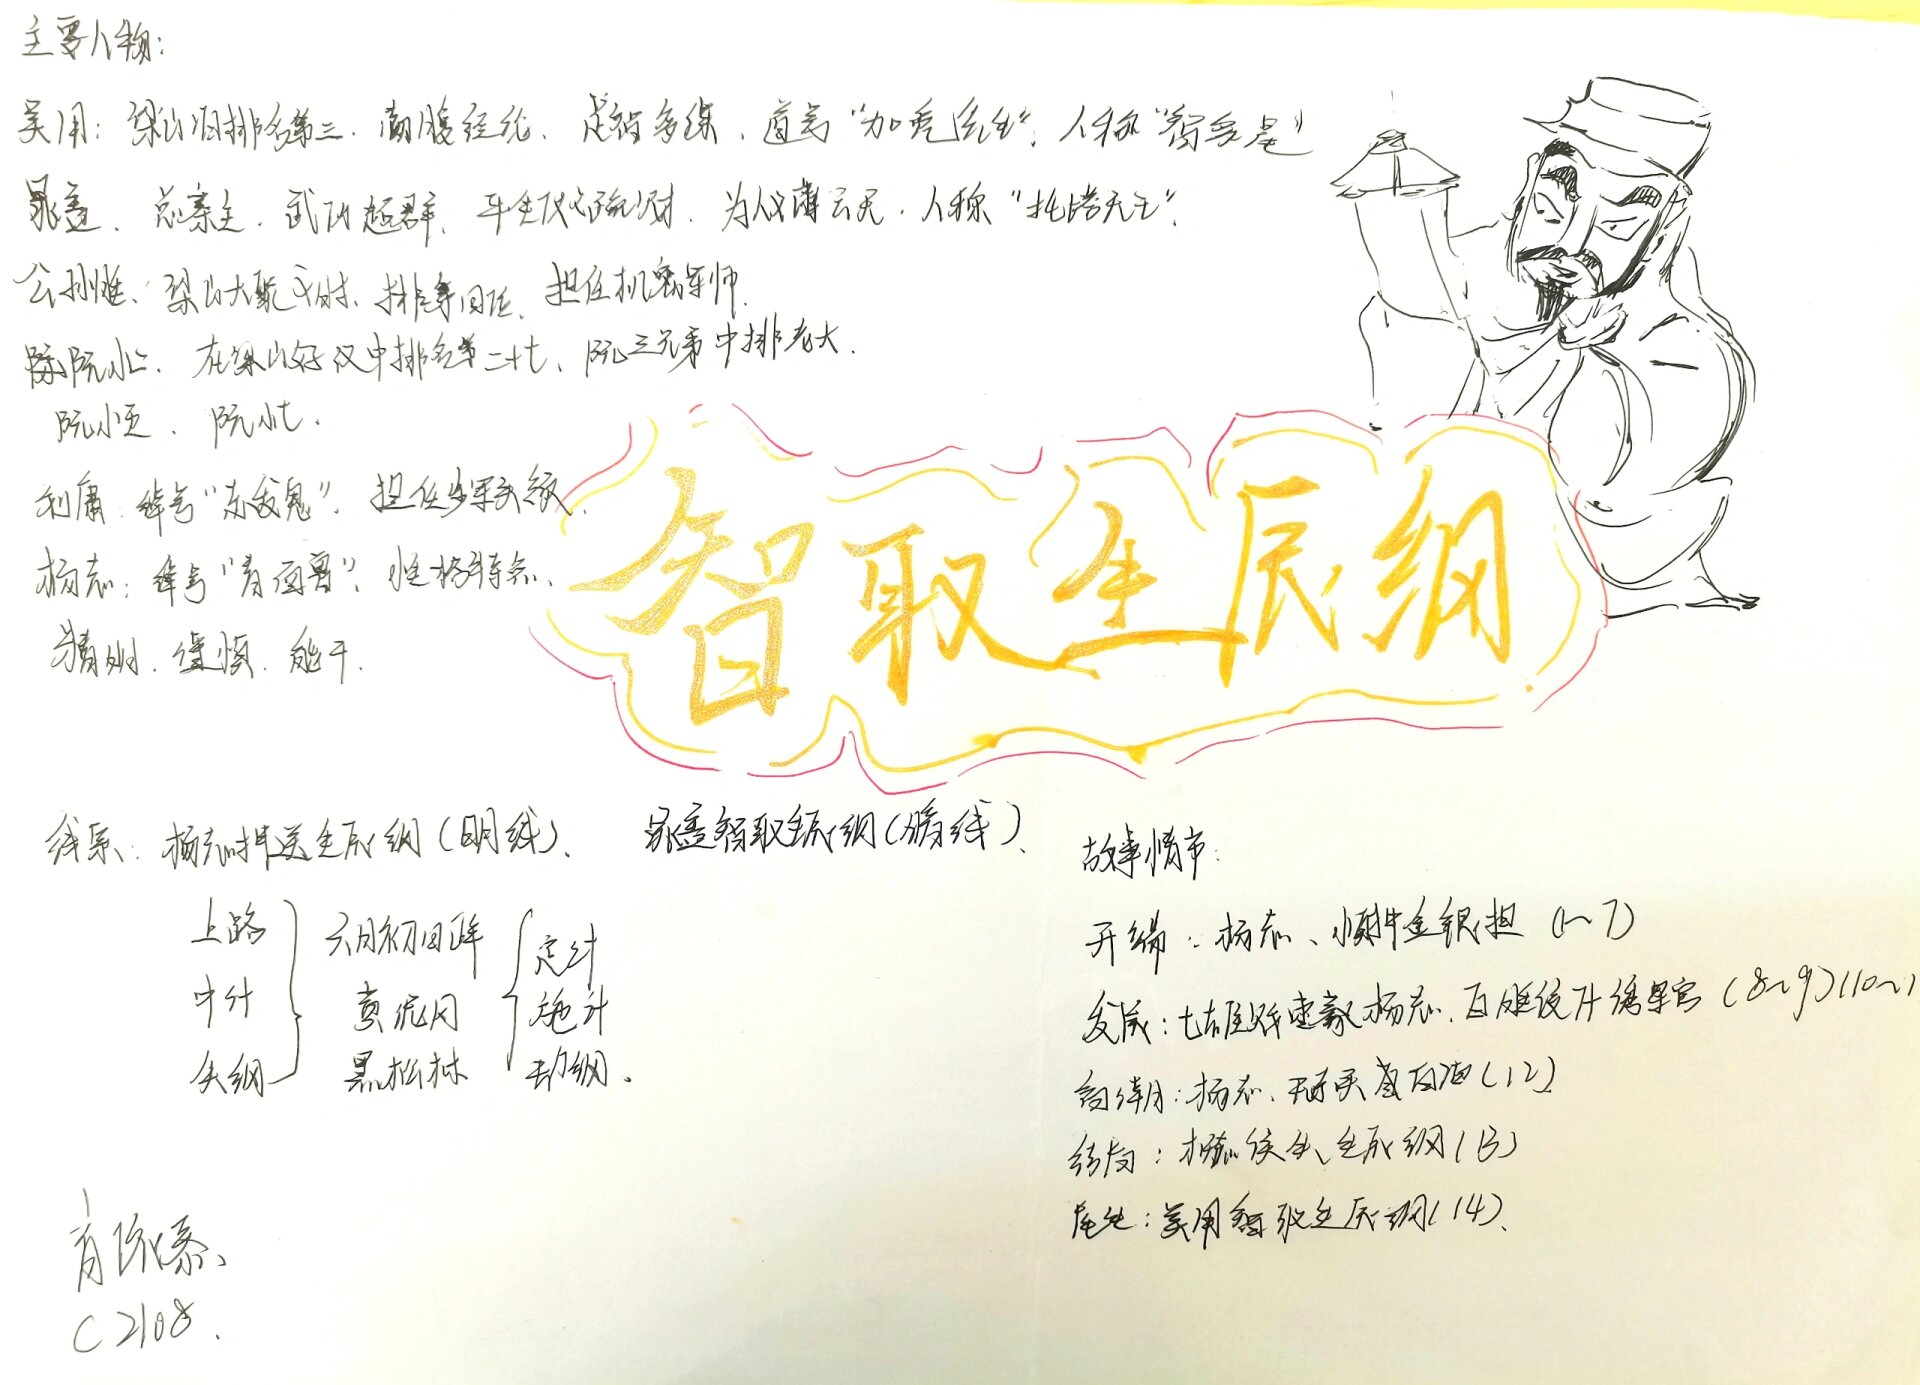 主要人物：
吴用：梁山泊排名第三、满腹经纶、足智多谋，道号“加亮先生”，人称“智多星”
晁盖、总寨主、武功超群、平生仗义疏财、为人义薄云天，人称“托塔天王”，
公孙胜、梁山大聚义时，排第四位，担任机密军师。
阮小二、在梁山好汉中排名第二十七、阮三兄弟中排老大.
阮小五、阮小七.
刘唐：绰号“赤发鬼”，担任步军头领
杨志：绰号“青面兽”，性格特点、
精明、谨慎、能干.
智取生辰纲
线索：杨志押送生辰纲（明线）、 晁盖智取生辰纲（暗线）、
上路 六月初四午 定计
中计 黄泥冈 施计
失纲 黑松林 劫纲.
故事情节：
开端：杨志、押金银担（1～7）
发展：七雄 杨志、白胜 （8～9）（10～1
高潮：杨志、 买 酒（12）
结局：杨志 失生辰纲（13）
尾声：吴用智取生辰纲（14）、
C2108.